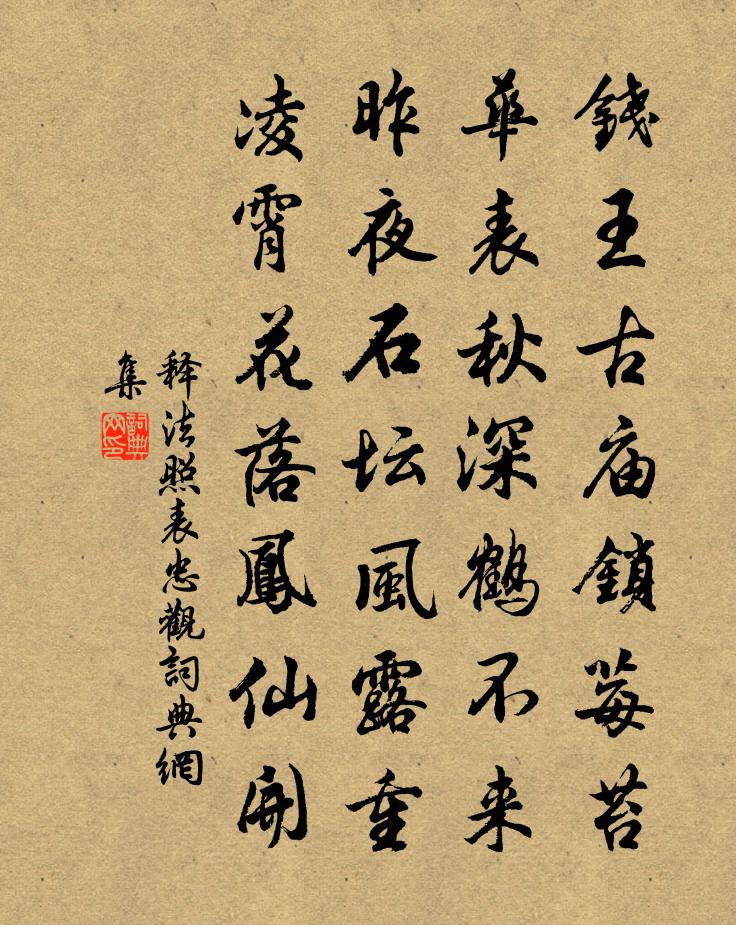 錢王古庙鎖莓苔
華表秋深鶴不来
昨夜石坛風露重
凌霄花落鳳仙開
释法照表忠觀詞典網
集
詞典网印